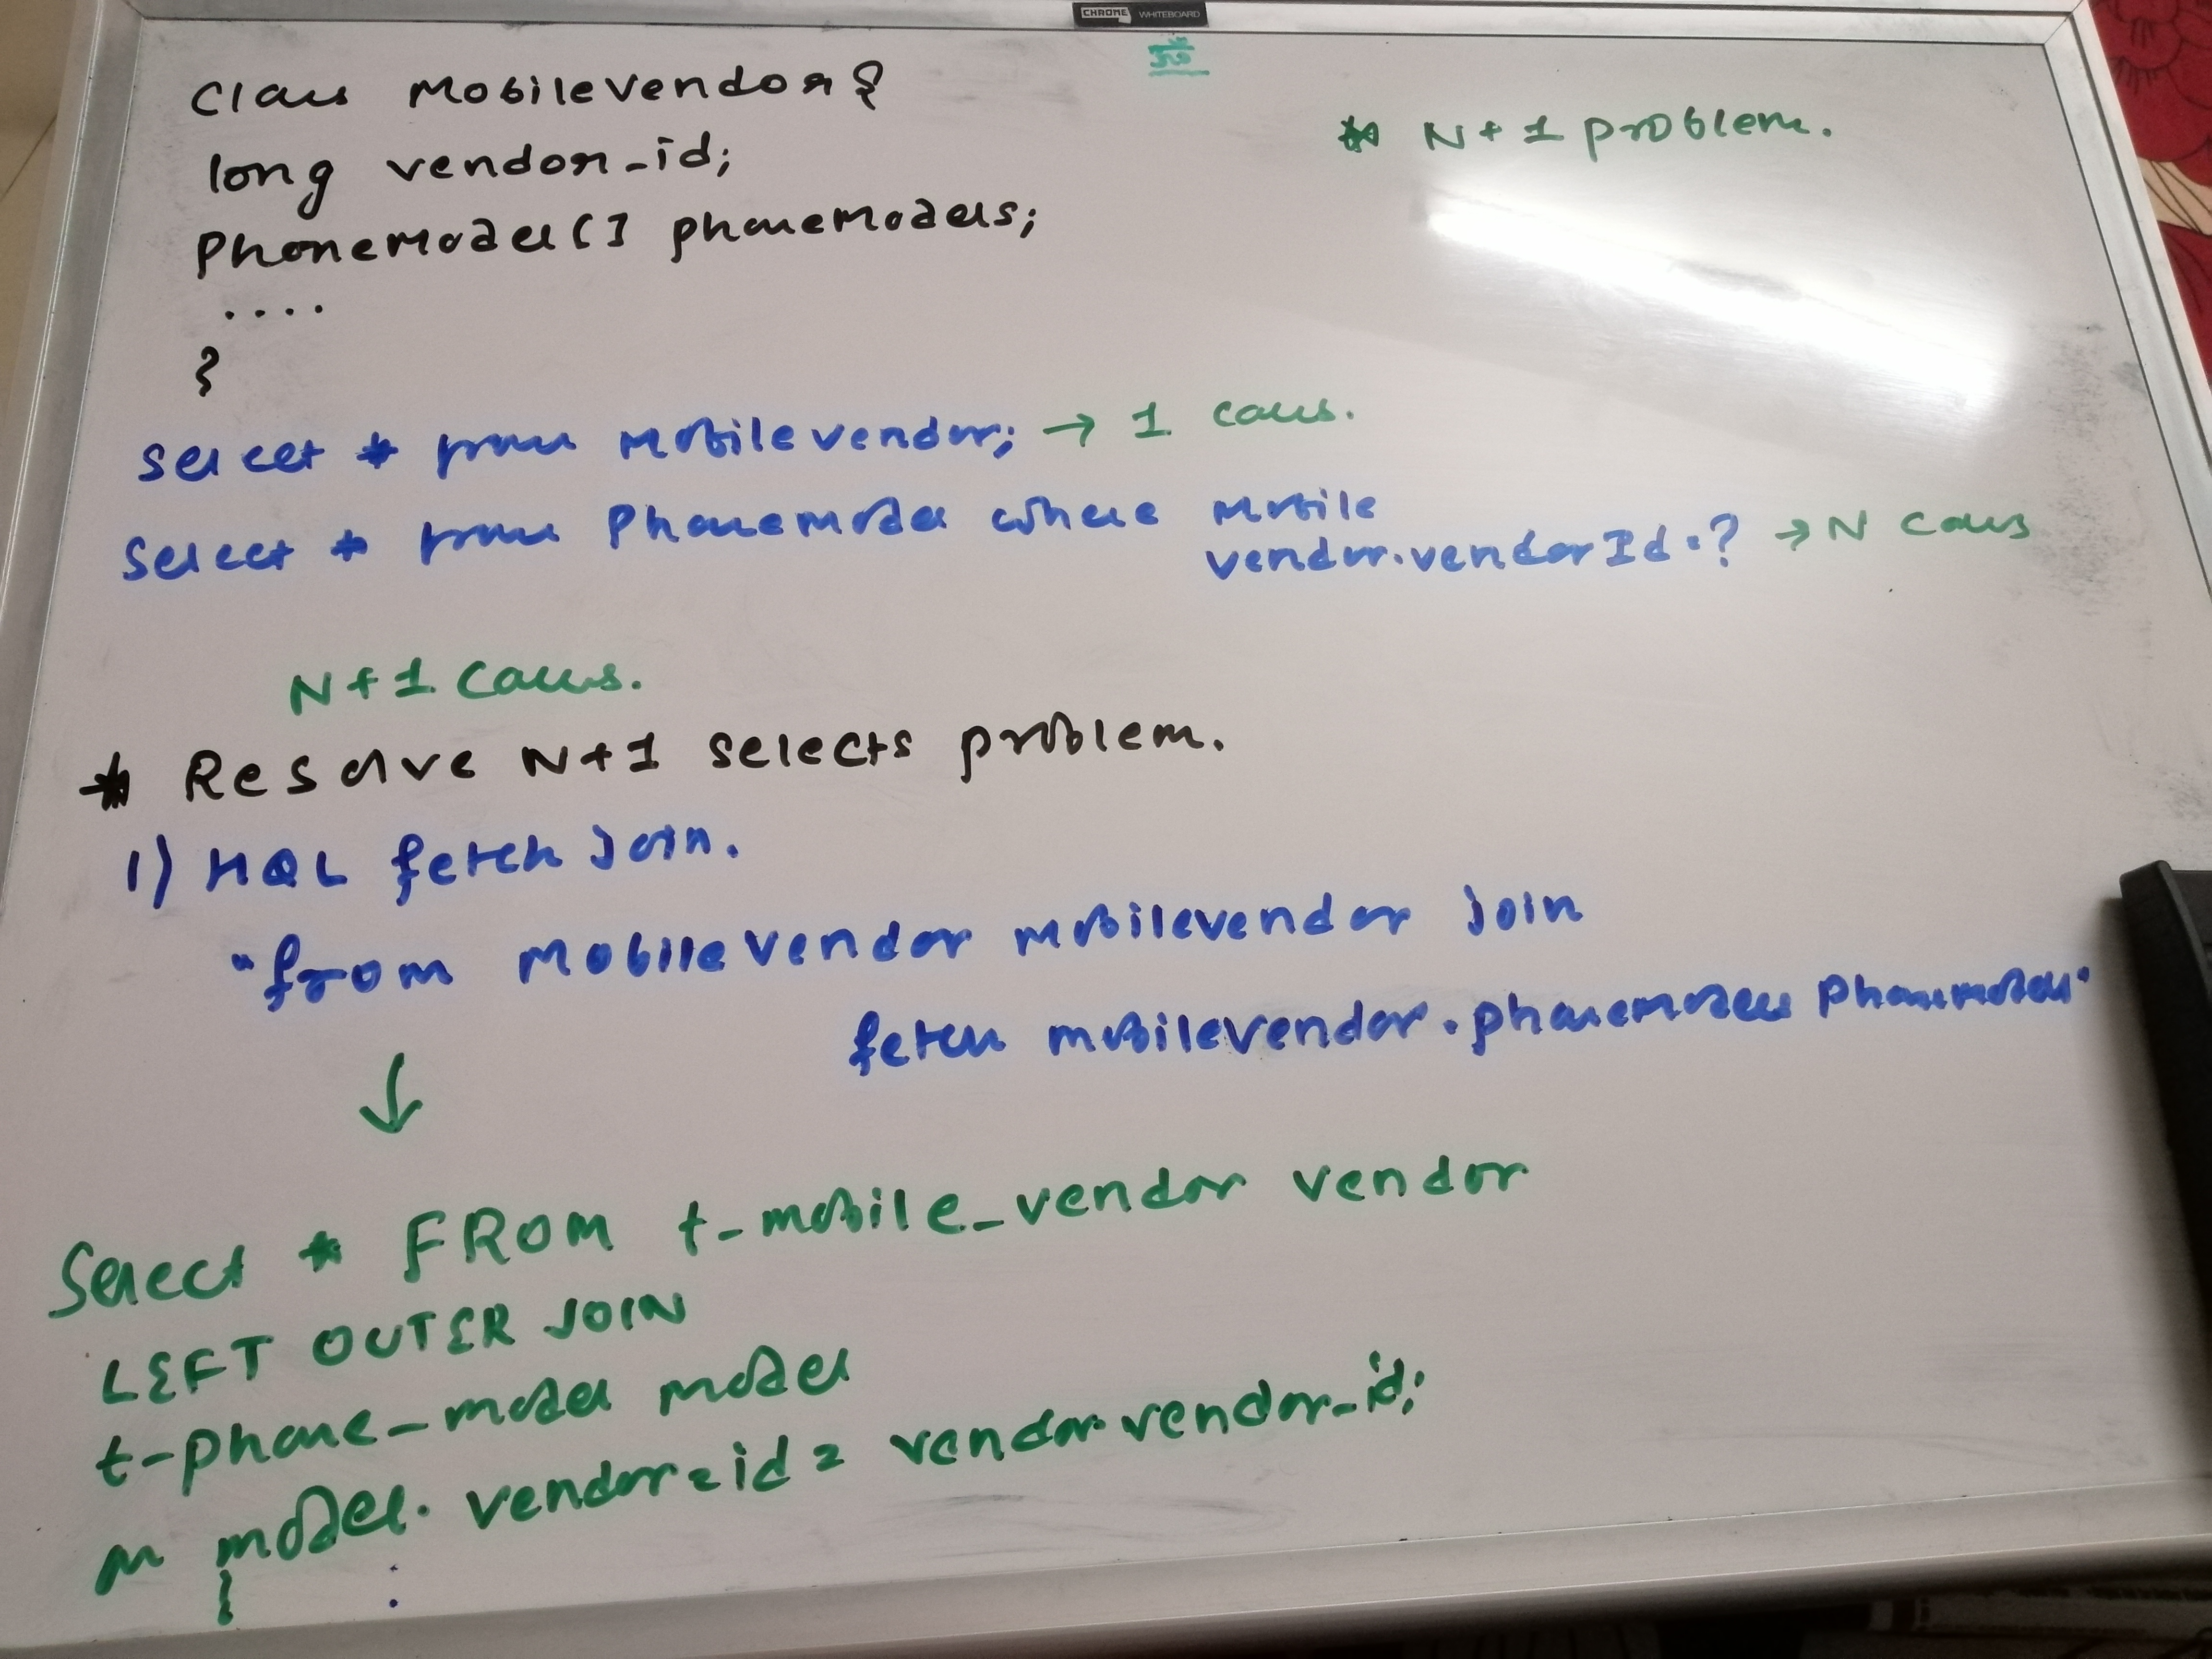 CHROME WHITEBOARD
ॐ
Class MobileVendor {
* N+1 problem.
long vendor_id;
PhoneModel[] phoneModels;
....
}
Select * from MobileVendor; → 1 calls.
Select * from Phonemodel where mobile
vendor.vendorId=? → N calls
N+1 calls.
* Resolve N+1 selects problem.
1) HQL fetch Join.
"from MobileVendor mobilevendor join
fetch mobilevendor.phonemodels Phonemodel"
↓
Select * FROM t-mobile_vendor vendor
LEFT OUTER JOIN
t-phone_model model
on model.vendor_id = vendor.vendor_id;